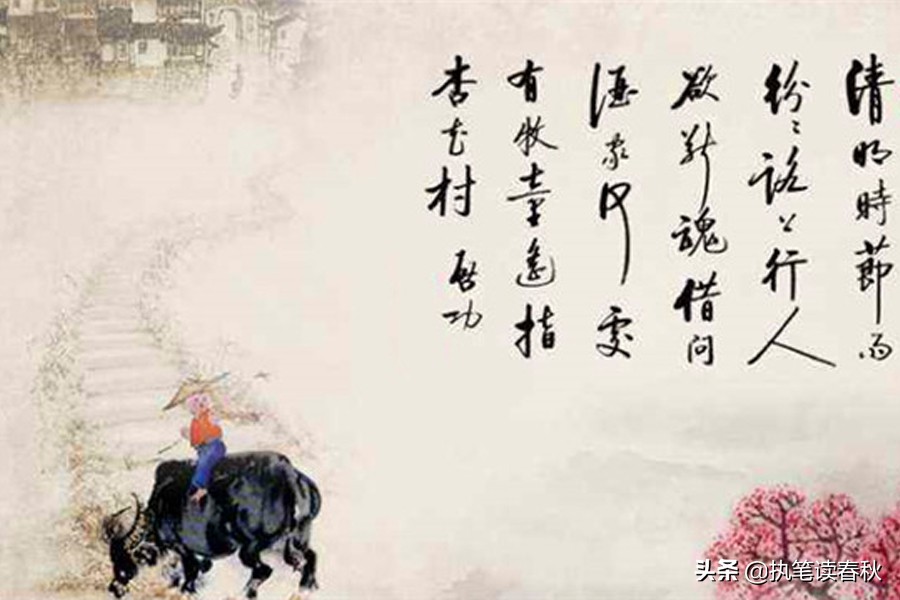 清明時節雨
紛〻路上行人
欲斷魂借问
酒家何處
有牧童遙指
杏花村
啟功
头条 @执笔读春秋